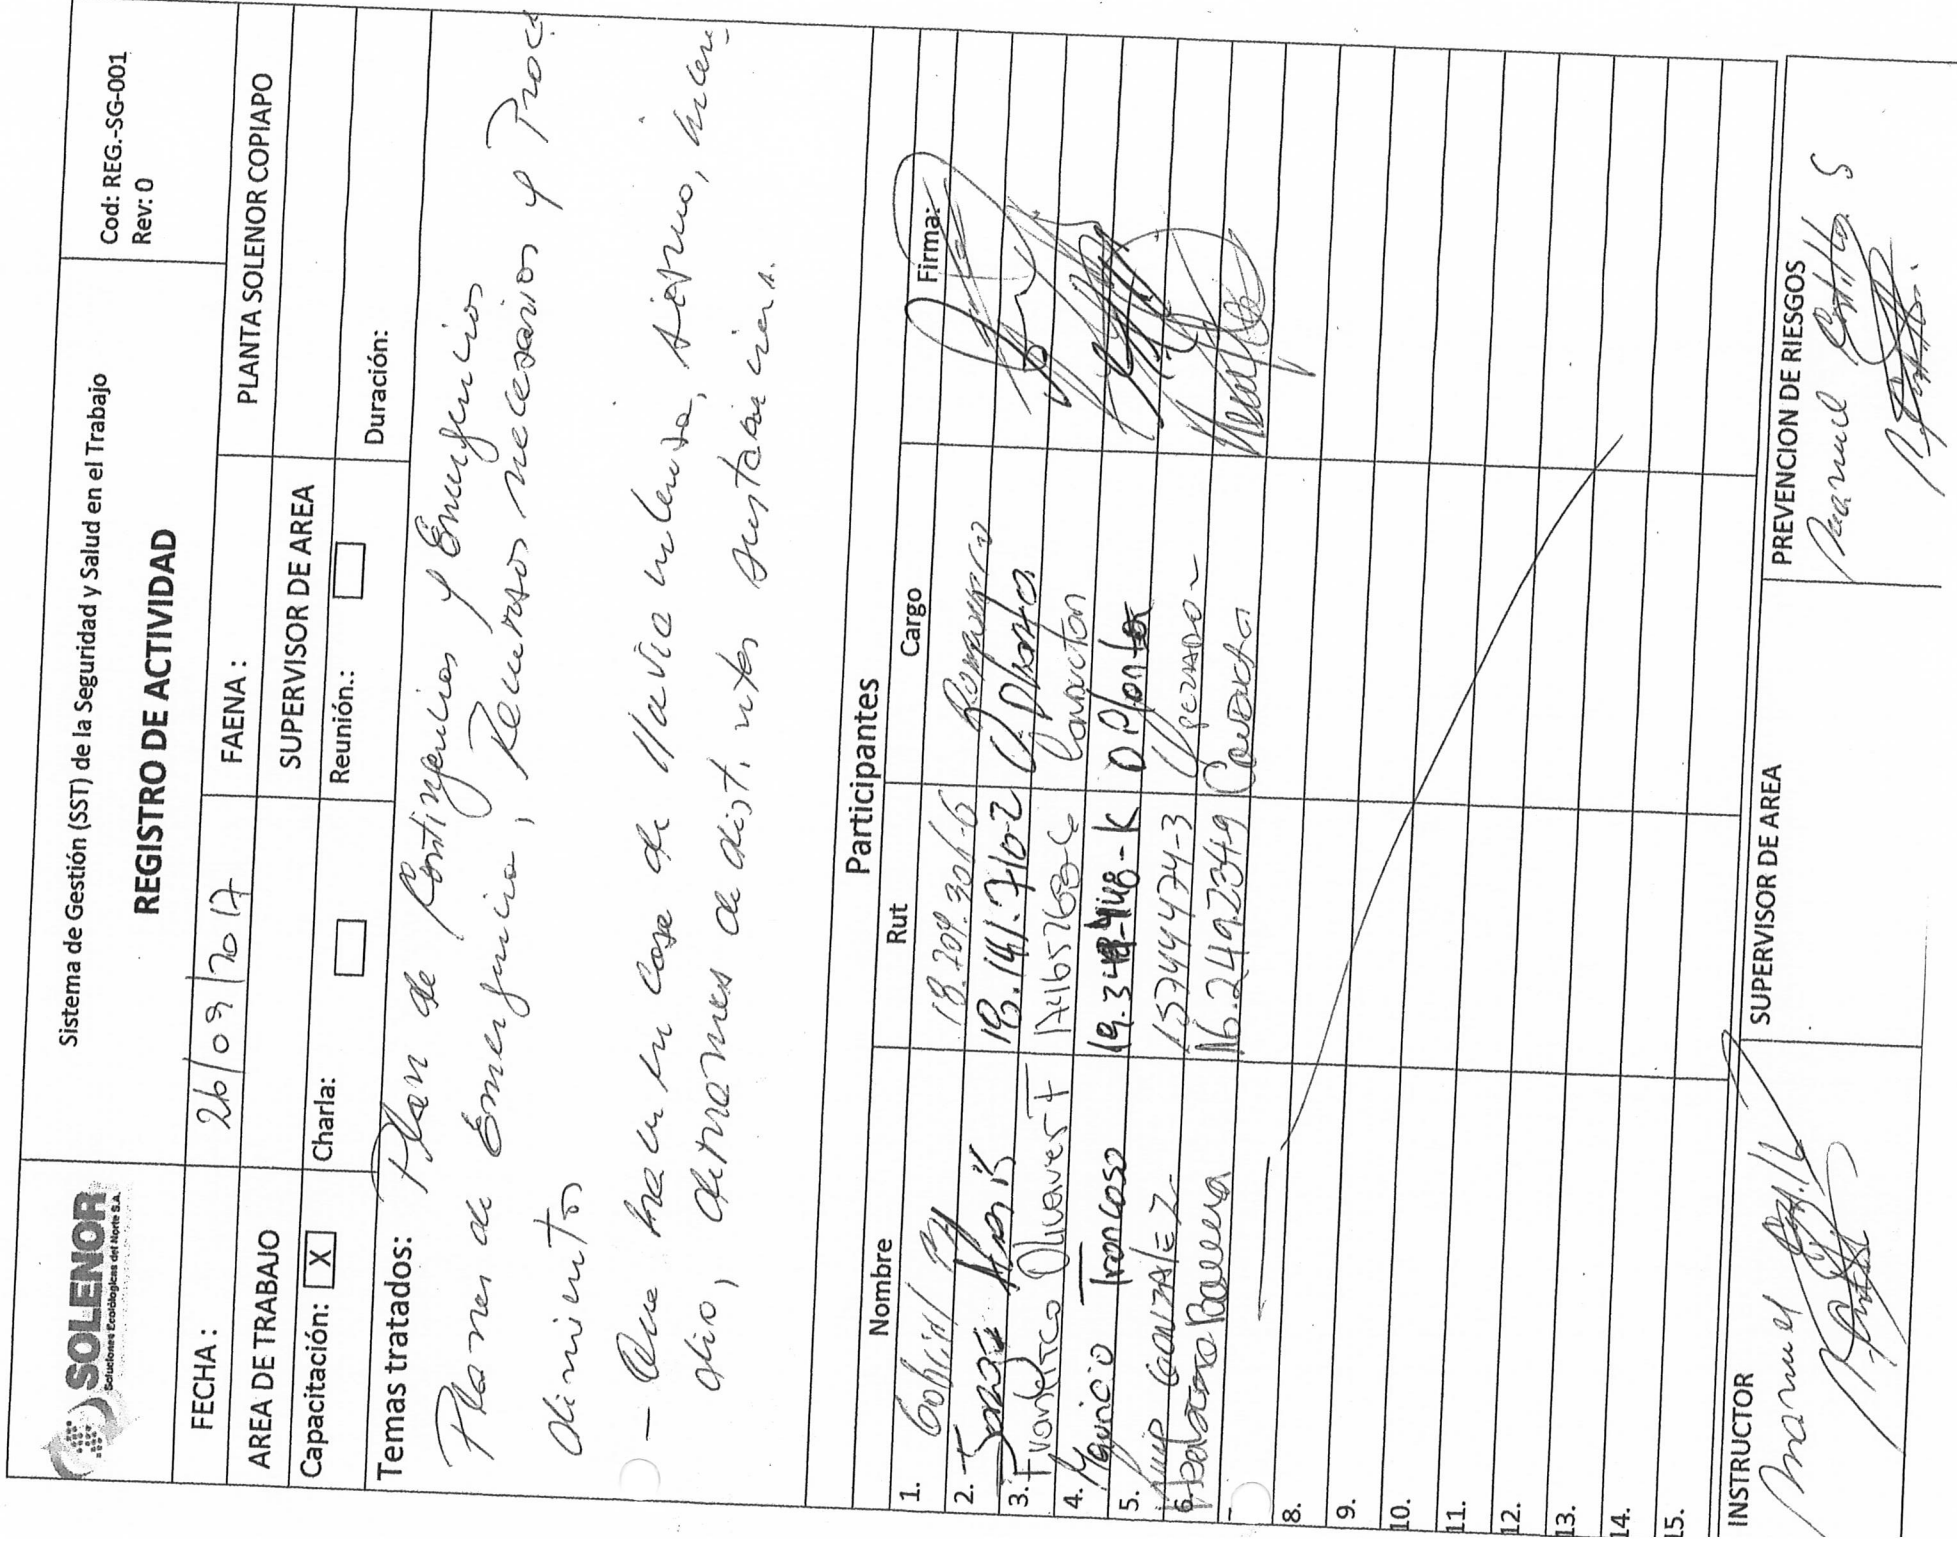 SOLENOR
Soluciones Ecológicas del Norte S.A.
Sistema de Gestión (SST) de la Seguridad y Salud en el Trabajo
REGISTRO DE ACTIVIDAD
Cod: REG.-SG-001
Rev: 0
FECHA : 26/09/2017 FAENA : PLANTA SOLENOR COPIAPO
AREA DE TRABAJO SUPERVISOR DE AREA
Capacitación: X Charla: Reunión.: Duración:
Temas tratados: Plan de Contingencias y Emergencias
Planes de Emergencia, Recursos necesarios y Proce
dimientos
- Que hacer en caso de lluvia violenta, sismo, incen-
dio, derrames de distintas sustancias.
Participantes
Nombre Rut Cargo Firma:
1. Gabriel 18.209.301-6
2. 18.141.710-2 O Planta
3. Francisco Olivares T Conductor
4. Mauricio Troncoso O Planta
5. GONZALEZ 15744474-3 Operador
6. Barrera 16.249.234-9 Conductor
8.
9.
10.
11.
12.
13.
14.
15.
INSTRUCTOR SUPERVISOR DE AREA PREVENCION DE RIESGOS
Manuel Castillo Manuel Castillo S